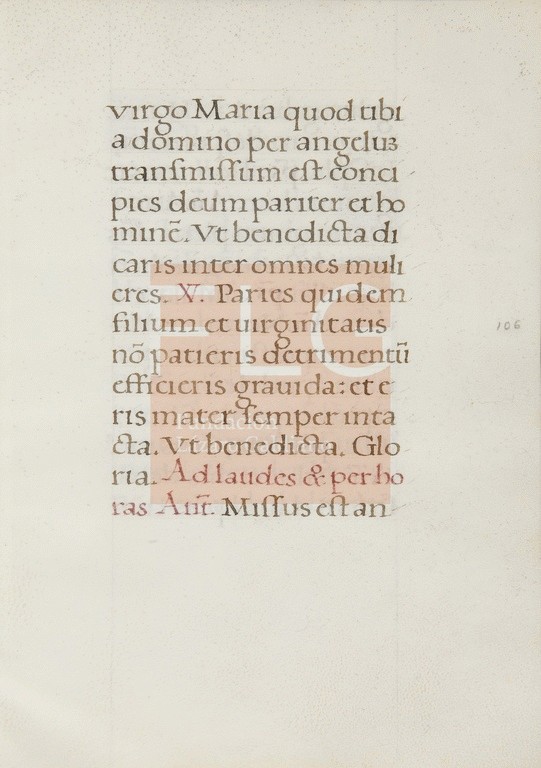 virgo Maria quod tibi
a domino per angeluʒ
tranſmiſſum eſt conci
pies deum pariter et ho
minẽ. Vt benedicta di
caris inter omnes muli
eres. V. Paries quidem
filium et uirginitatis
nõ patieris detrimentũ
efficieris grauida: et e
ris mater ſemper inta
cta. Vt benedicta. Glo
ria. Ad laudes & per ho
ras Añt. Miſſus eſt an
106
FLG
Fundación
Lázaro Galdiano